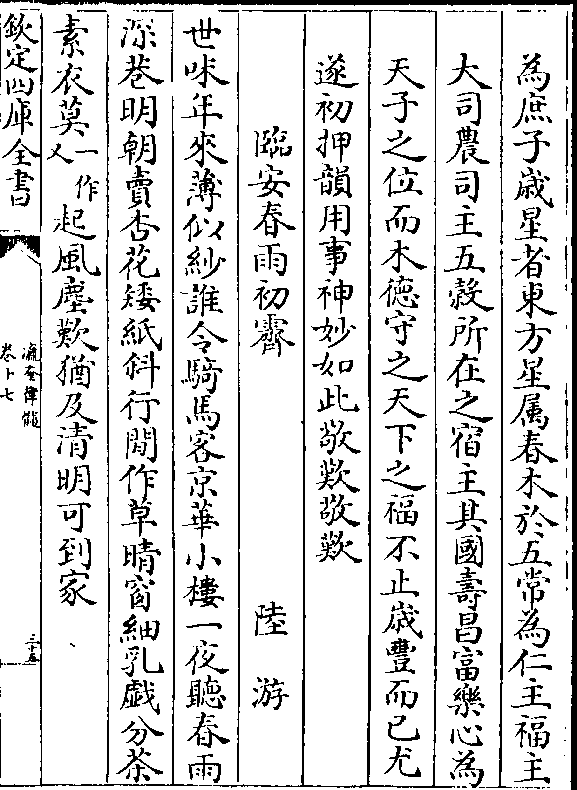 為庶子歲星者東方星属春木於五常為仁主福主
大司農司主五穀所在之宿主其國壽昌富樂心為
天子之位而木徳守之天下之福不止歲豐而已尤
遂初押韻用事神妙如此敬歎敬歎
臨安春雨初霽 陸游
世味年來薄似紗誰令騎馬客京華小樓一夜聽春雨
深巷明朝賣杏花矮紙斜行閒作草晴窗細乳戯分茶
素衣莫一作又起風塵歎猶及清明可到家
欽定四庫全書
瀛奎律髓
卷十七
三十五